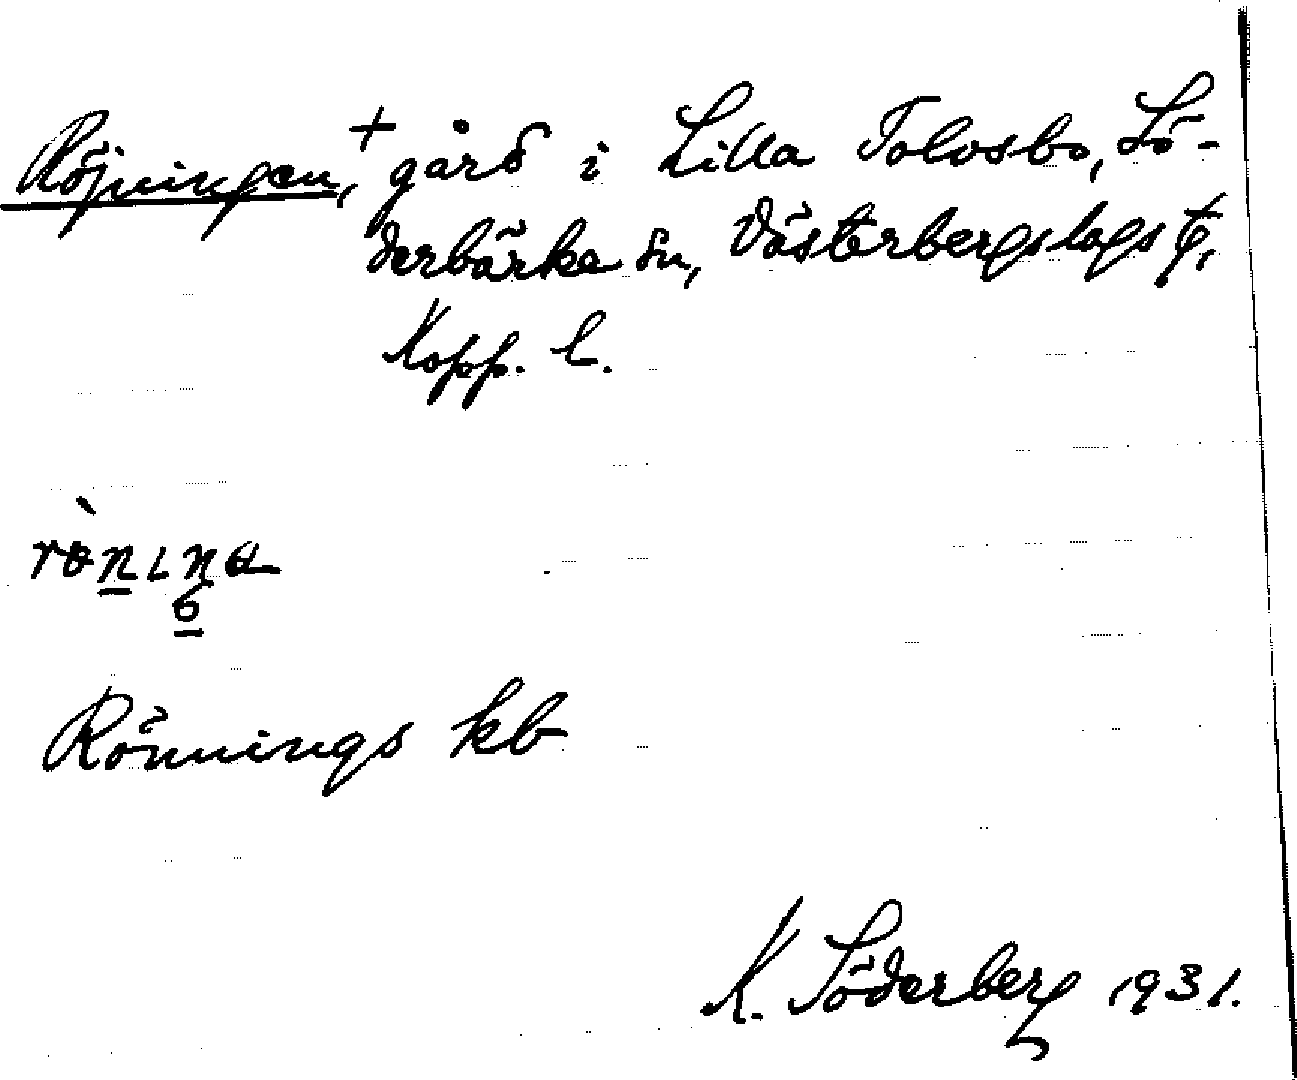 Röjningen, + gård i Lilla Tolvsbo, Sö-
derbärke sn, Västerbergslags
Kopp. l.
Rönnings kb
K. Söderberg 1931.